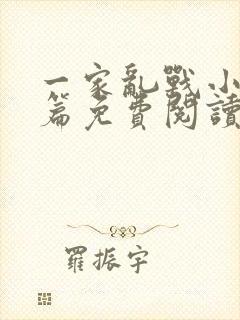 一家亂戰小
篇免費閱讀
羅振宇